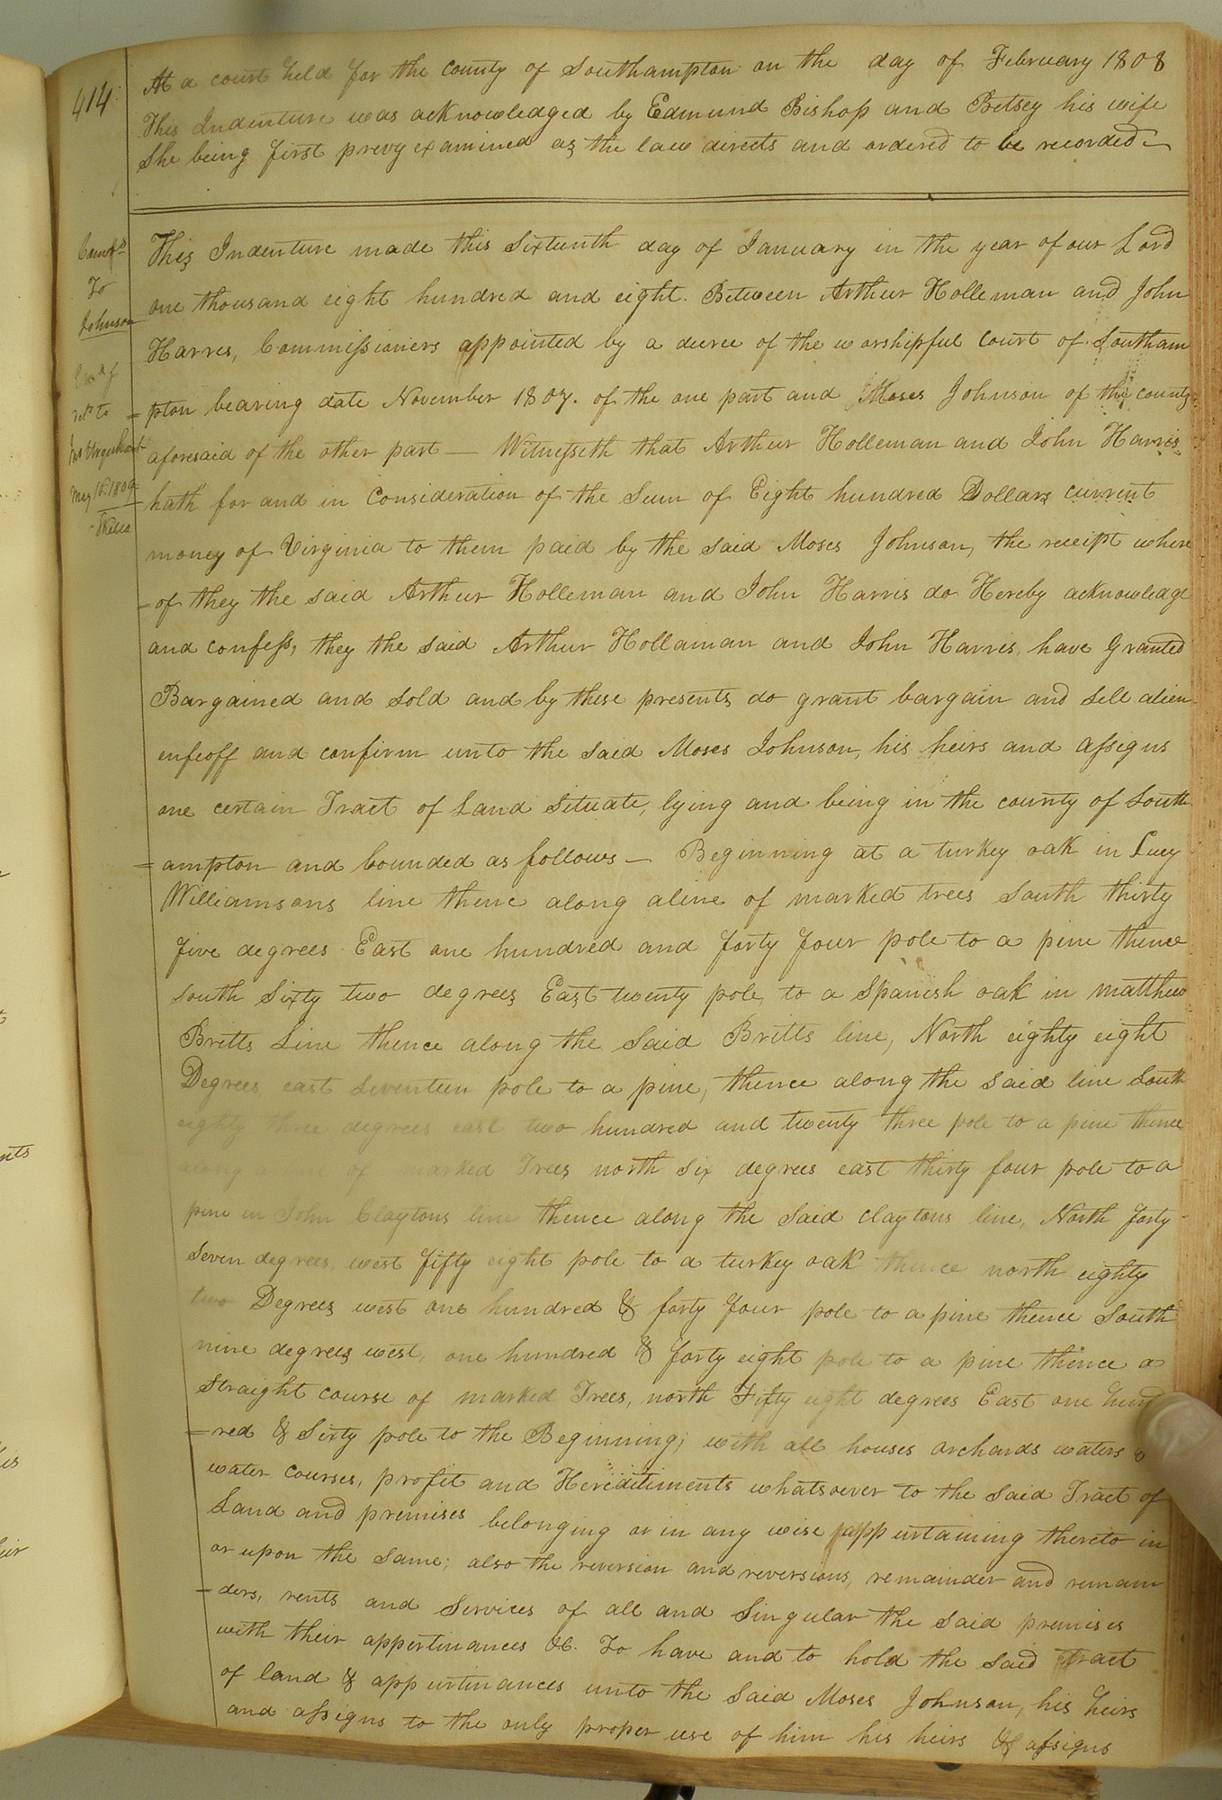 414
At a court held for the county of Southampton on the day of February 1808
This Indenture was acknowledged by Edmund Bishop and Betsey his wife
She being first prevy examined as the law directs and ordered to be recorded
Comrs
To
Johnson
reto to
May 16. 1809
This Indenture made this Sixteenth day of January in the year of our Lord
one thousand eight hundred and eight. Between Arthur Holleman and John
Harres, Commissioners appointed by a decree of the worshipful Court of Southam
=pton bearing date November 1807. of the one part and Moses Johnson of the county
aforesaid of the other part — Witnesseth that Arthur Holleman and John Harris
hath for and in Consideration of the Sum of Eight hundred Dollars current
money of Virginia to them paid by the said Moses Johnson, the receipt where
-of they the said Arthur Holleman and John Harris do Hereby acknowledge
and confess, they the said Arthur Hollaman and John Harres, have Granted
Bargained and Sold and by these presents do grant bargain and sell alien
enfeoff and confirm unto the said Moses Johnson, his heirs and assegns
one certain Tract of Land Situate, lying and being in the county of South
=ampton and bounded as follows — Beginning at a turkey oak in Lucy
Williamsons line thence along aline of marked trees South thirty
five degrees East one hundred and forty four pole to a pine thence
South Sixty two degrees East twenty pole to a Spanish oak in matthew
Britts Line thence along the Said Britts line, North eighty eight
Degrees east Seventeen pole to a pine, thence along the said line South
eighty three degrees east two hundred and twenty three pole to a pine thence
along a line of marked Trees north Six degrees east thirty four pole to a
pine in John Claytons line thence along the Said Claytons line, North forty
Seven degrees, west fifty eight pole to a turkey oak thence north eighty
two Degrees west one hundred & forty four pole to a pine thence South
nine degrees west, one hundred & forty eight pole to a pine thence a
Straight course of marked Trees, north Fifty eight degrees East one hund
=red & Sixty pole to the Beginning; with all houses orchards waters &
water courses, profit and Hereditiments whatsoever to the said Tract of
Land and premises belonging or in any wise appurtaining thereto in
or upon the same; also the reversion and reversions, remainder and remain
-ders, rents and Services of all and Singular the said premises
with their appertinances &c. To have and to hold the said Tract
of land & appurtinances unto the Said Moses Johnson, his heirs
and assigns to the only proper use of him his heirs & assigns